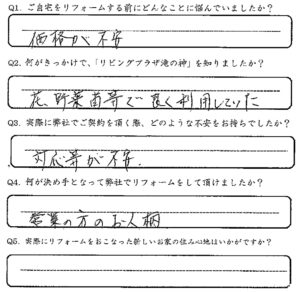 Q1. ご自宅をリフォームする前にどんなことに悩んでいましたか？
価格が不安
Q2. 何がきっかけで、「リビングプラザ滝の神」を知りましたか？
花、野菜苗等で良く利用していた
Q3. 実際に弊社でご契約を頂く際、どのような不安をお持ちでしたか？
対応等が不安.
Q4. 何が決め手となって弊社でリフォームをして頂けましたか？
営業の方のお人柄
Q5. 実際にリフォームをおこなった新しいお家の住み心地はいかがですか？